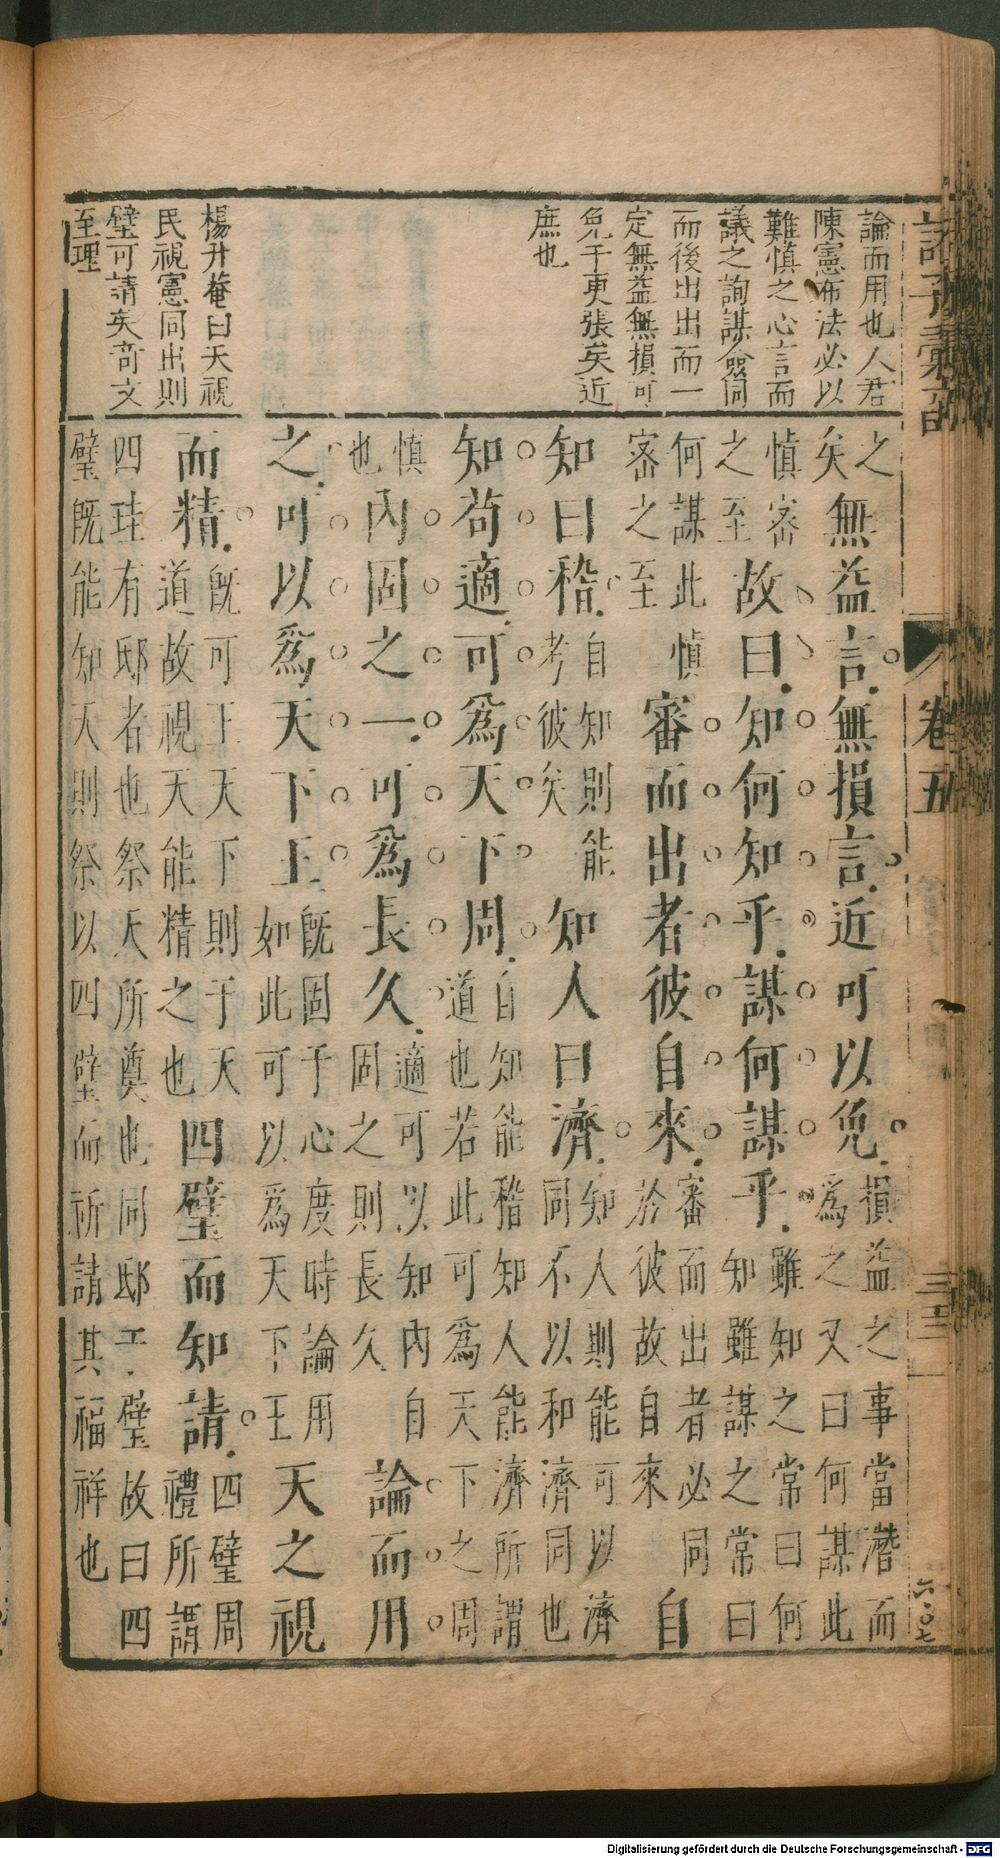 論而用也人君
陳憲布法必以
難慎之心言而
議之詢謀僉同
而後出出而一
定無益無損可
免于更張矣近
庶也
楊升菴曰天視
民視憲同出則
璧可請矣奇文
至理
諸子彙函 卷五
之矣無益言無損言近可以免損益之事當潛而為之又曰何謀此
慎審之至故曰知何知乎謀何謀乎雖知之常曰何知雖謀之常曰
何謀此慎審之至審而出者彼自來審而出者必同於彼故自來自
知曰稽自知則能考彼矣知人曰濟知人則能可以濟同不以和濟同也
知苟適可為天下周自知能稽知人能濟所謂道也若此可為天下之周
慎也內固之一可為長久適可以知內自固之則長久論而用
之可以為天下王既固于心度時論用如此可以為天下王天之視
而精既可王天下則于天道故視天能精之也四璧而知請四璧周禮所謂
四珪有邸者也祭天所奠也同邸于璧故曰四
璧既能知天則祭以四璧而祈請其福祥也
Digitalisierung gefördert durch die Deutsche Forschungsgemeinschaft - DFG